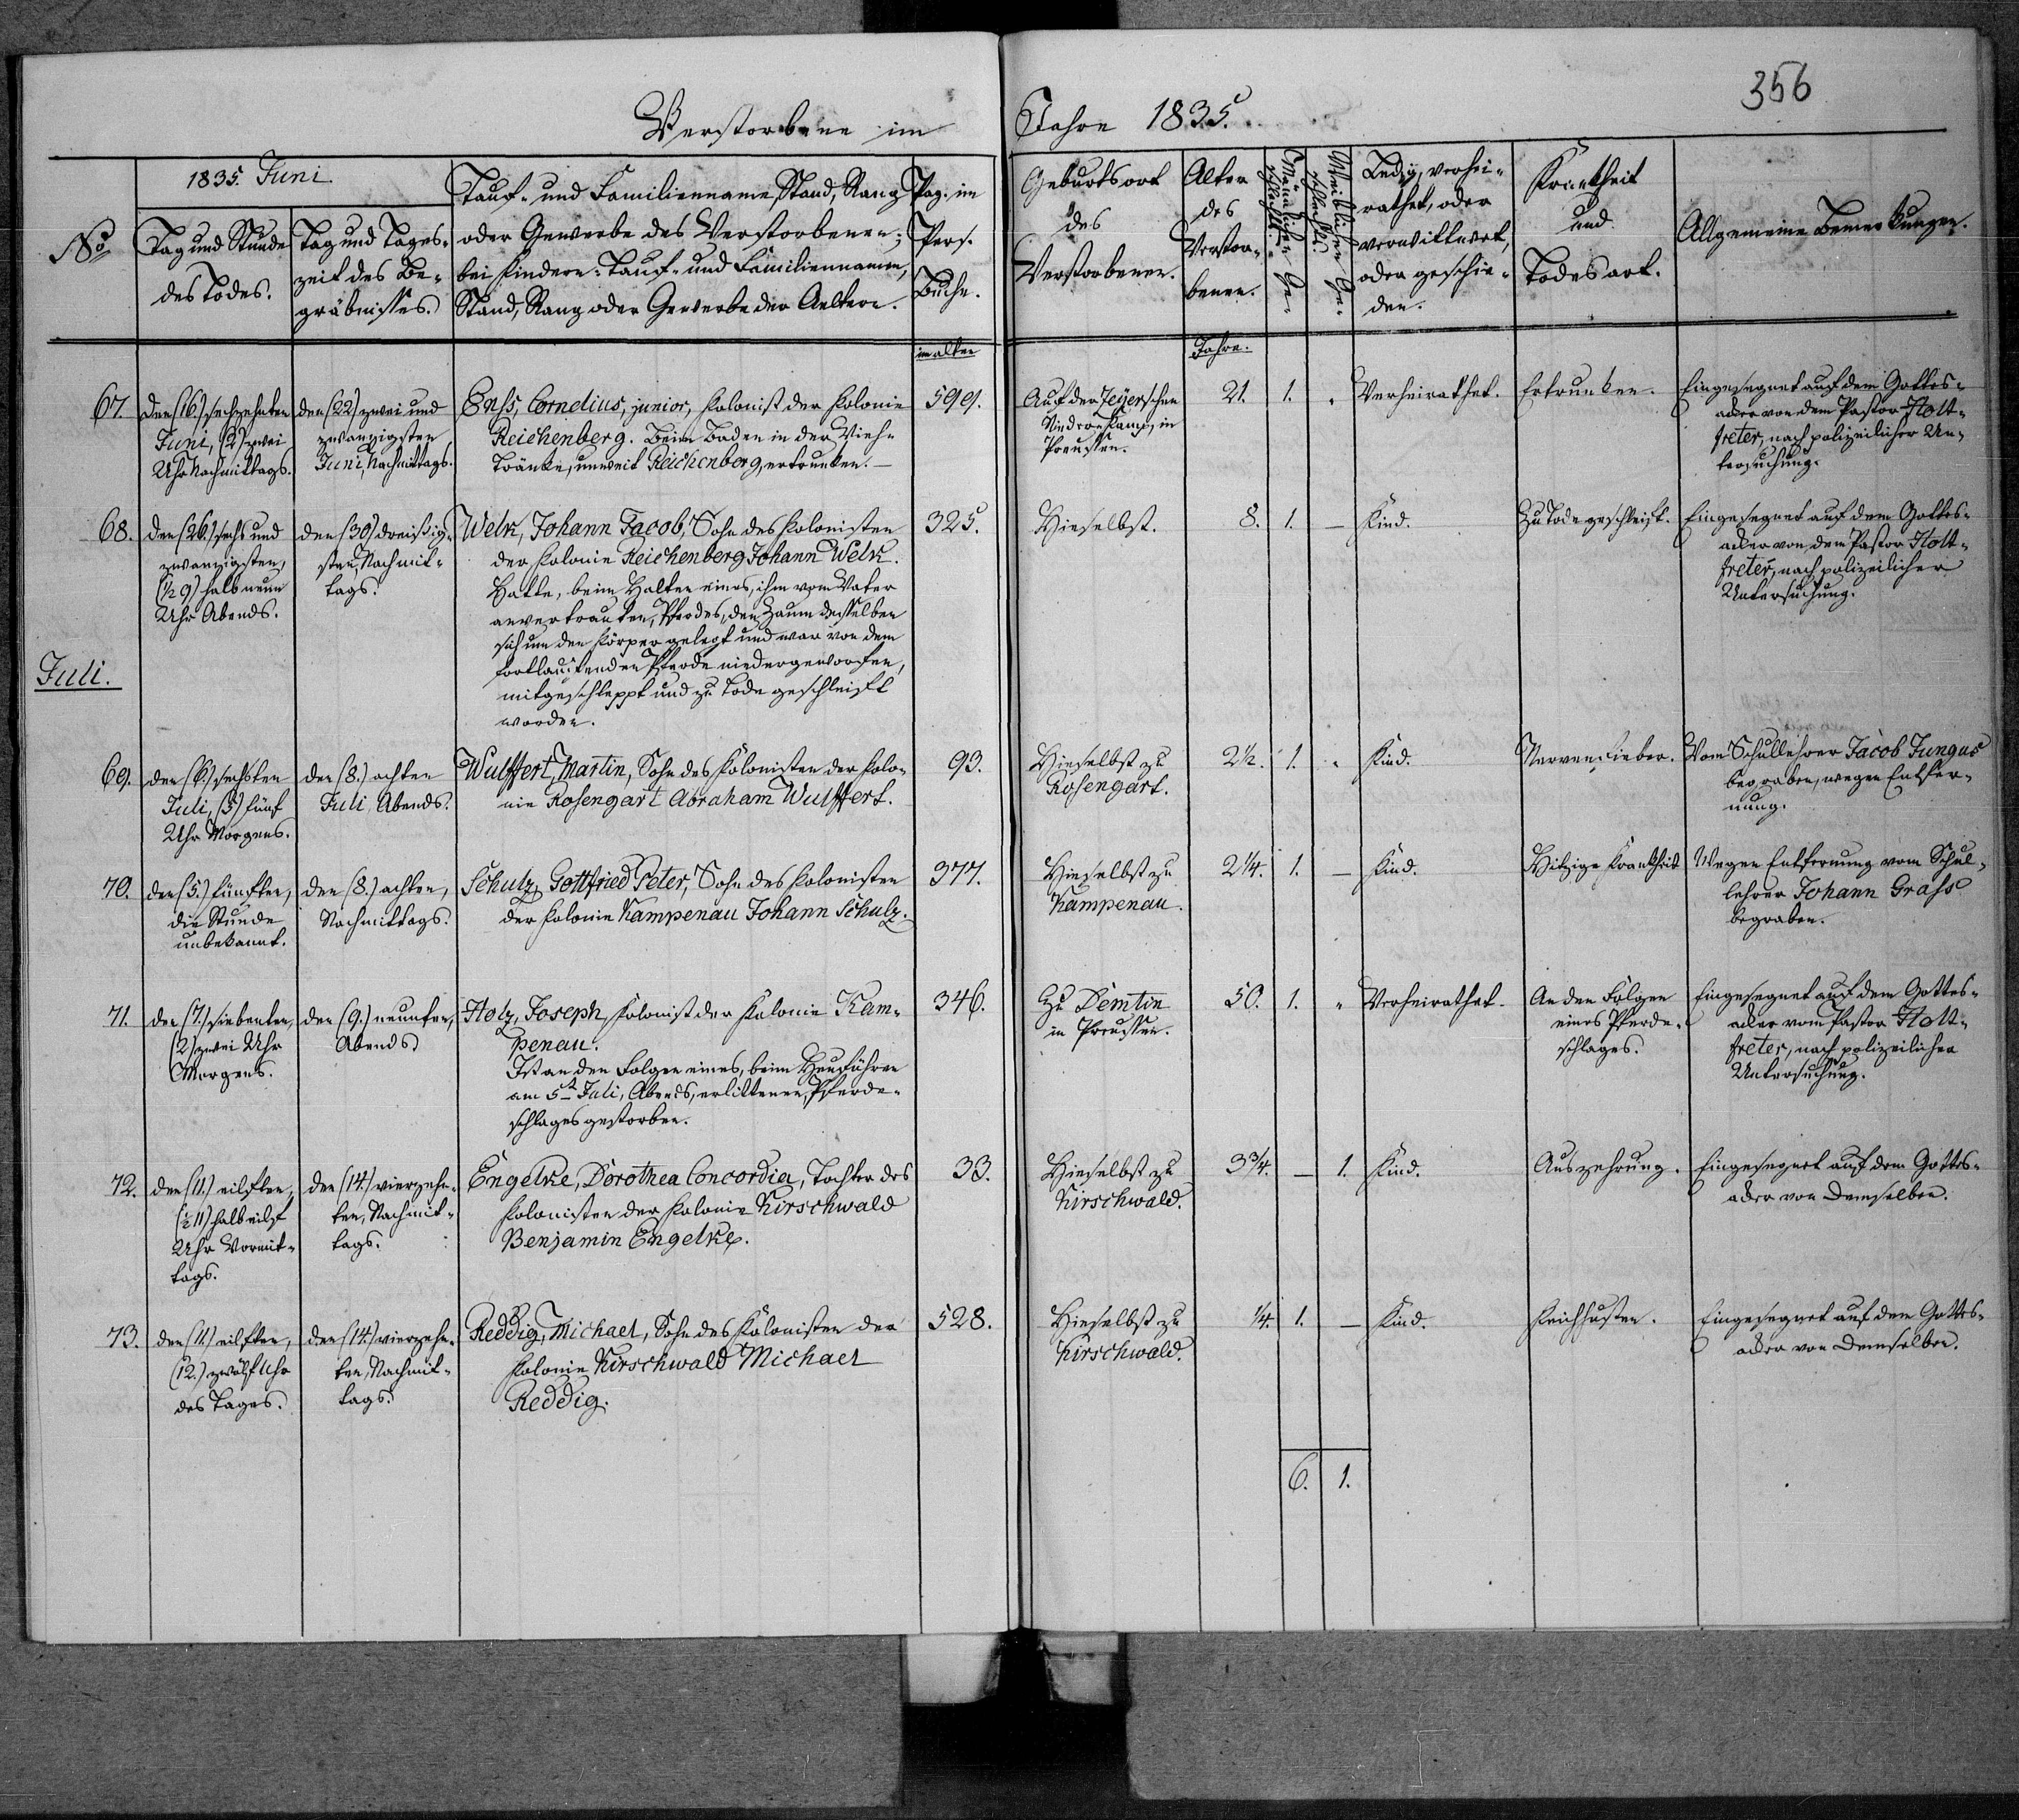 356
Verstorbene im Jahre 1835.
1835. Juni
No
Tag und Stunde
des Todes.
Tag und Tages-
zeit des Be-
gräbnisses.
Tauf- und Familienname, Stand, Rang
oder Gewerbe des Verstorbenen;
bei Kindern: Tauf- und Familiennamen,
Stand, Rang oder Gewerbe der Aeltern.
Pag. im
Pers.
Buche.
Geburtsort
des
Verstorbenen.
Alter
des
Verstor-
benen.
Männlichen Ge-
schlechts.
Weiblichen Ge-
schlechts.
Ledig, verhei-
rathet, oder
verwittwet,
oder geschie-
den.
Krankheit
und
Todesart.
Allgemeine Bemerkungen.
im alten
Jahre.
67.
den (16.) sechzehnten
Juni, (2) zwei
Uhr Nachmittags.
den (22) zwei und
zwanzigsten
Juni, Nachmittags.
Enss, Cornelius, junior, Kolonist der Kolonie
Reichenberg. Beim Baden in der Vieh-
tränke, unweit Reichenberg, ertrunken. —
599.
Auf der Zeyerschen
Niederkamp, in
Preussen.
21.
1.
"
Verheirathet.
Ertrunken.
Eingesegnet auf dem Gottes-
acker von dem Pastor Holt-
freter, nach polizeilicher Un-
tersuchung.
68.
den (26.) sechs und
zwanzigsten,
(½ 9) halb neun
Uhr Abends.
den (30) dreißig-
sten, Nachmit-
tags.
Welk, Johann Jacob, Sohn des Kolonisten
der Kolonie Reichenberg Johann Welk.
Hatte, beim Halten eines, ihm vom Vater
anvertrauten, Pferdes, den Zaum desselben
sich um den Körper gelegt und war von dem
fortlaufenden Pferde niedergeworfen,
mitgeschleppt und zu Tode geschleift
worden.
325.
Hieselbst.
8.
1.
—
Kind.
Zu Tode geschleift.
Eingesegnet auf dem Gottes-
acker von dem Pastor Holt-
freter, nach polizeilicher
Untersuchung.
Juli.
69.
den (6.) sechsten
Juli, (5) fünf
Uhr Morgens.
den (8.) achten
Juli Abends.
Wulffert, Martin, Sohn des Kolonisten der Kolo-
nie Rosengart Abraham Wulffert.
93.
Hieselbst zu
Rosengart.
2½.
1.
"
Kind.
Nervenfieber.
Vom Schullehrer Jacob Jungas
begraben, wegen Entfer-
nung.
70.
den (5.) fünften,
die Stunde
unbekannt.
den (8.) achten,
Nachmittags.
Schulz, Gottfried Peter, Sohn des Kolonisten
der Kolonie Kampenau Johann Schulz.
377.
Hieselbst zu
Kampenau.
2¼.
1.
—
Kind.
Hitzige Krankheit
Wegen Entfernung vom Schul-
lehrer Johann Grass
begraben.
71.
den (7.) siebenten,
(2) zwei Uhr
Morgens.
den (9.) neunten,
Abends.
Holz, Joseph, Kolonist der Kolonie Kam-
penau.
Ist an den Folgen eines, beim Heuführen
am 5t Juli, Abends, erlittenen, Pferde-
schlages gestorben.
346.
Zu Demtin
in Preussen.
50.
1.
"
Verheirathet.
An den Folgen
eines Pferde-
schlages.
Eingesegnet auf dem Gottes-
acker vom Pastor Holt-
freter, nach polizeilicher
Untersuchung.
72.
den (11.) eilften,
(½ 11) halb eilf
Uhr Vormit-
tags.
den (14.) vierzehn-
ten, Nachmit-
tags.
Engelke, Dorothea Concordia, Tochter des
Kolonisten der Kolonie Kirschwald
Benjamin Engelke.
33.
Hieselbst zu
Kirschwald.
3¾.
—
1.
Kind.
Auszehrung.
Eingesegnet auf dem Gottes-
acker von Demselben.
73.
den (11.) eilften,
(12.) zwölf Uhr
des Tages.
den (14.) vierzehn-
ten, Nachmit-
tags.
Reddig, Michael, Sohn des Kolonisten der
Kolonie Kirschwald Michael
Reddig.
528.
Hieselbst zu
Kirschwald.
¼.
1.
—
Kind.
Keichhusten.
Eingesegnet auf dem Gottes-
acker von Demselben.
6.
1.